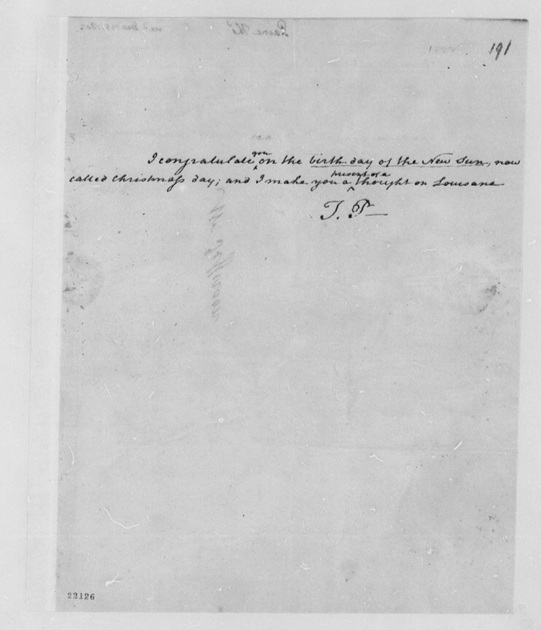 191
I congratulate you on the birth day of the New Sun, now
called Christmass day; and I make you a present of a thought on Louisana
T. P—
22126